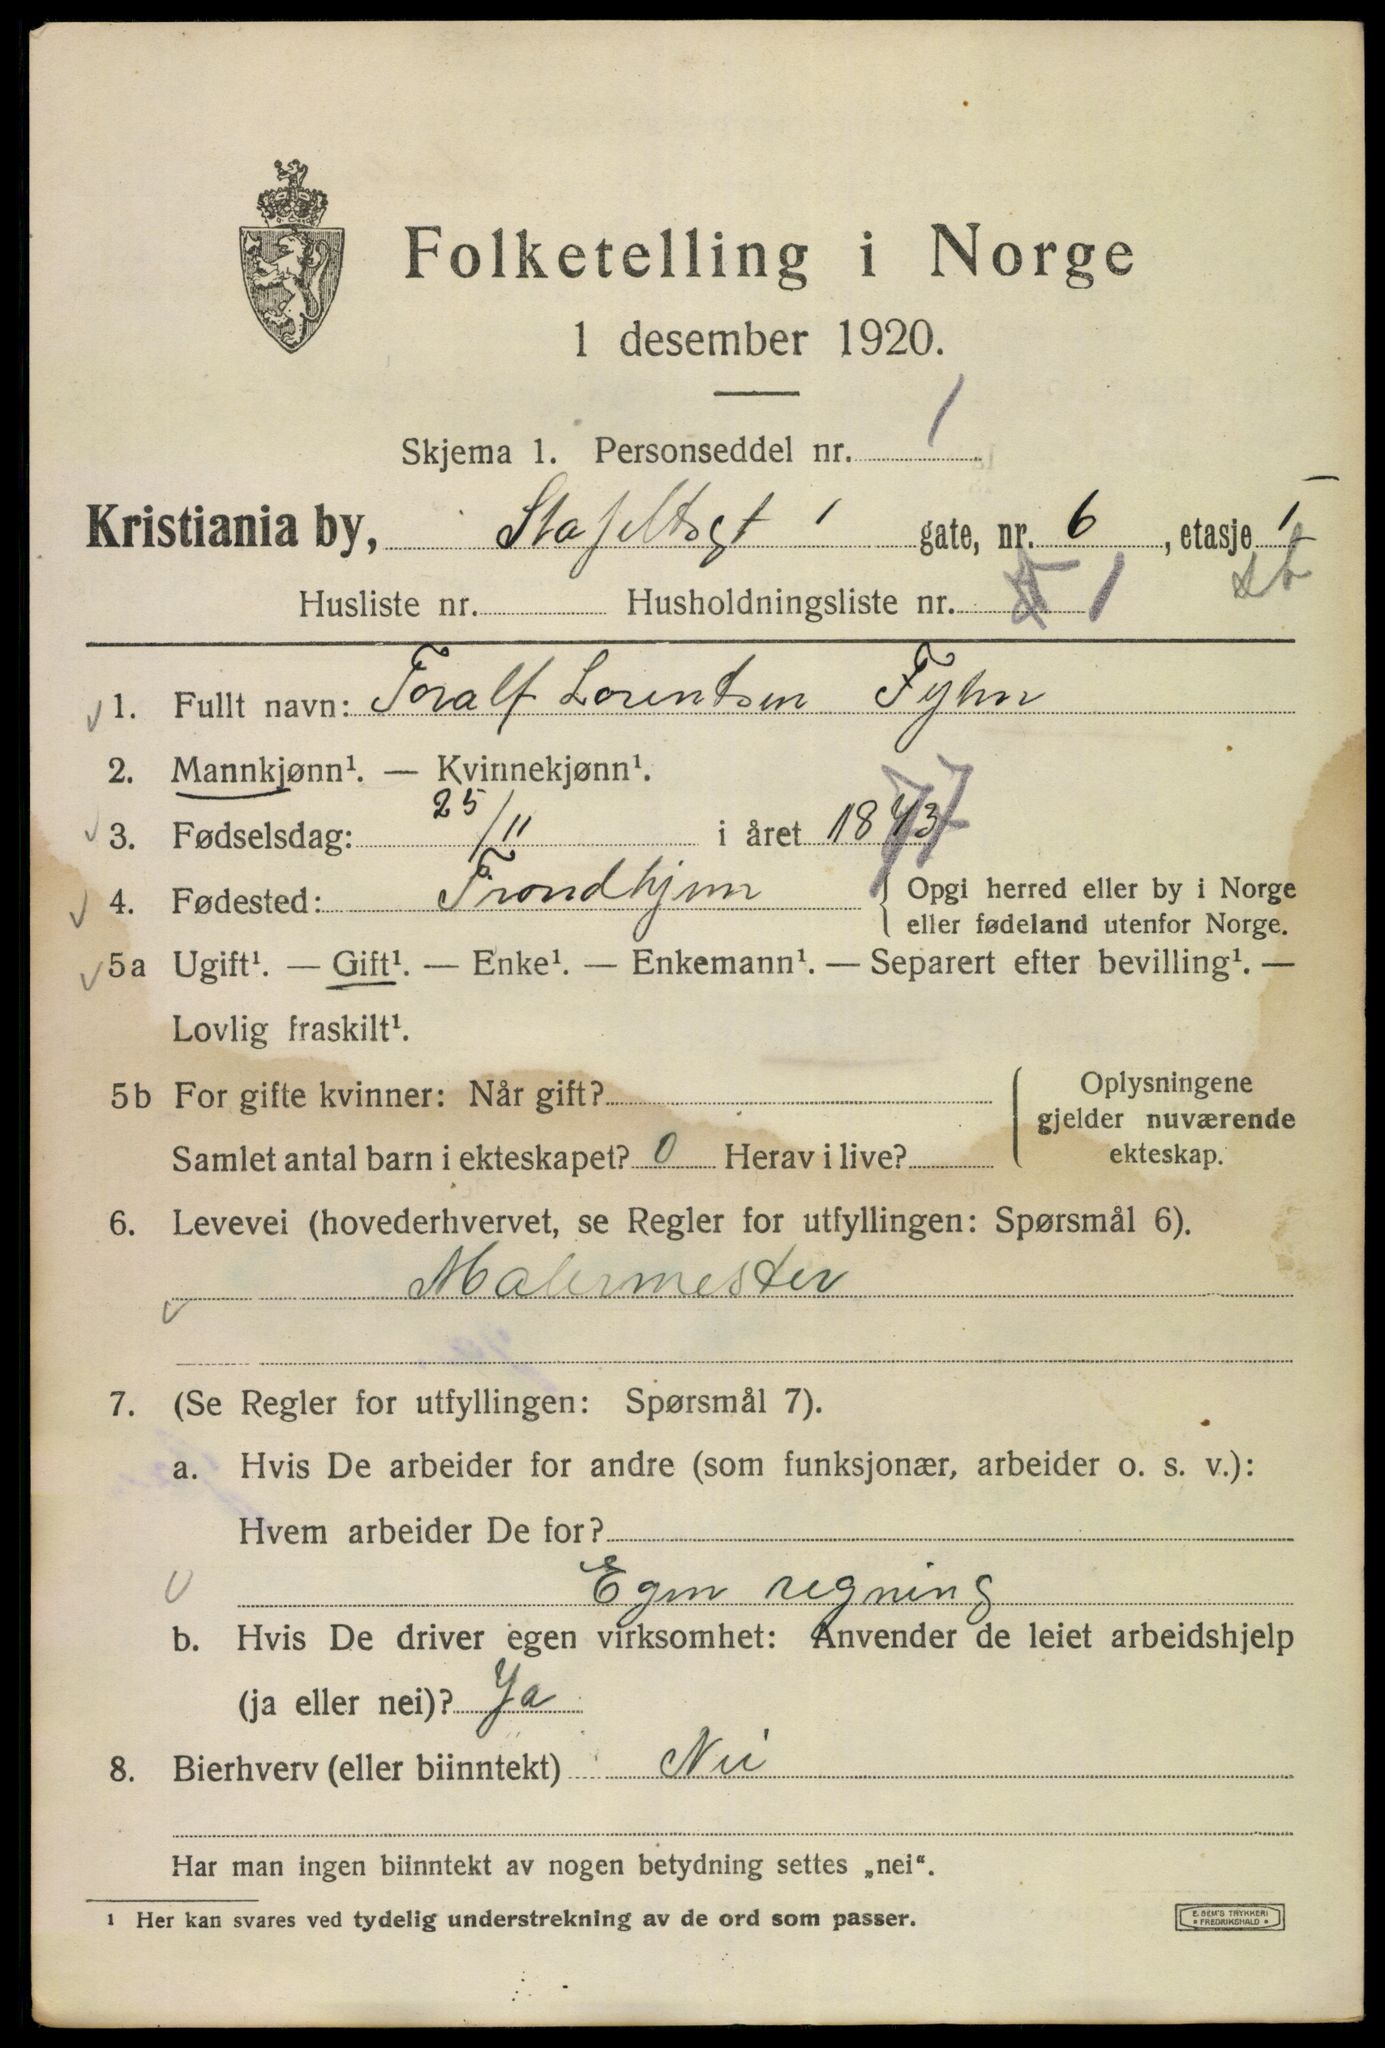 Folketelling i Norge
1 desember 1920.
Skjema 1. Personseddel nr. 1
Kristiania by, Staffeldtsgt gate, nr. 6, etasje 1
Husliste nr. Husholdningsliste nr. 1
1. Fullt navn: Toralf Lorentsen Fyhn
2. Mannkjønn¹. — Kvinnekjønn¹.
3. Fødselsdag: 25/11 i året 1873 77
4. Fødested: Trondhjem { Opgi herred eller by i Norge
eller fødeland utenfor Norge.
5a Ugift¹. — Gift¹. — Enke¹. — Enkemann¹. — Separert efter bevilling¹. —
Lovlig fraskilt¹.
5b For gifte kvinner: Når gift?
Samlet antal barn i ekteskapet? 0 Herav i live?
Oplysningene
gjelder nuværende
ekteskap.
6. Levevei (hovederhvervet, se Regler for utfyllingen: Spørsmål 6).
Malermester
7. (Se Regler for utfyllingen: Spørsmål 7).
a. Hvis De arbeider for andre (som funksjonær, arbeider o. s. v.):
Hvem arbeider De for?
Egen regning
b. Hvis De driver egen virksomhet: Anvender de leiet arbeidshjelp
(ja eller nei)? Ja
8. Bierhverv (eller biinntekt) Nei
Har man ingen biinntekt av nogen betydning settes „nei“.
¹ Her kan svares ved tydelig understrekning av de ord som passer.
E. SEM'S TRYKKERI
FREDRIKSHALD